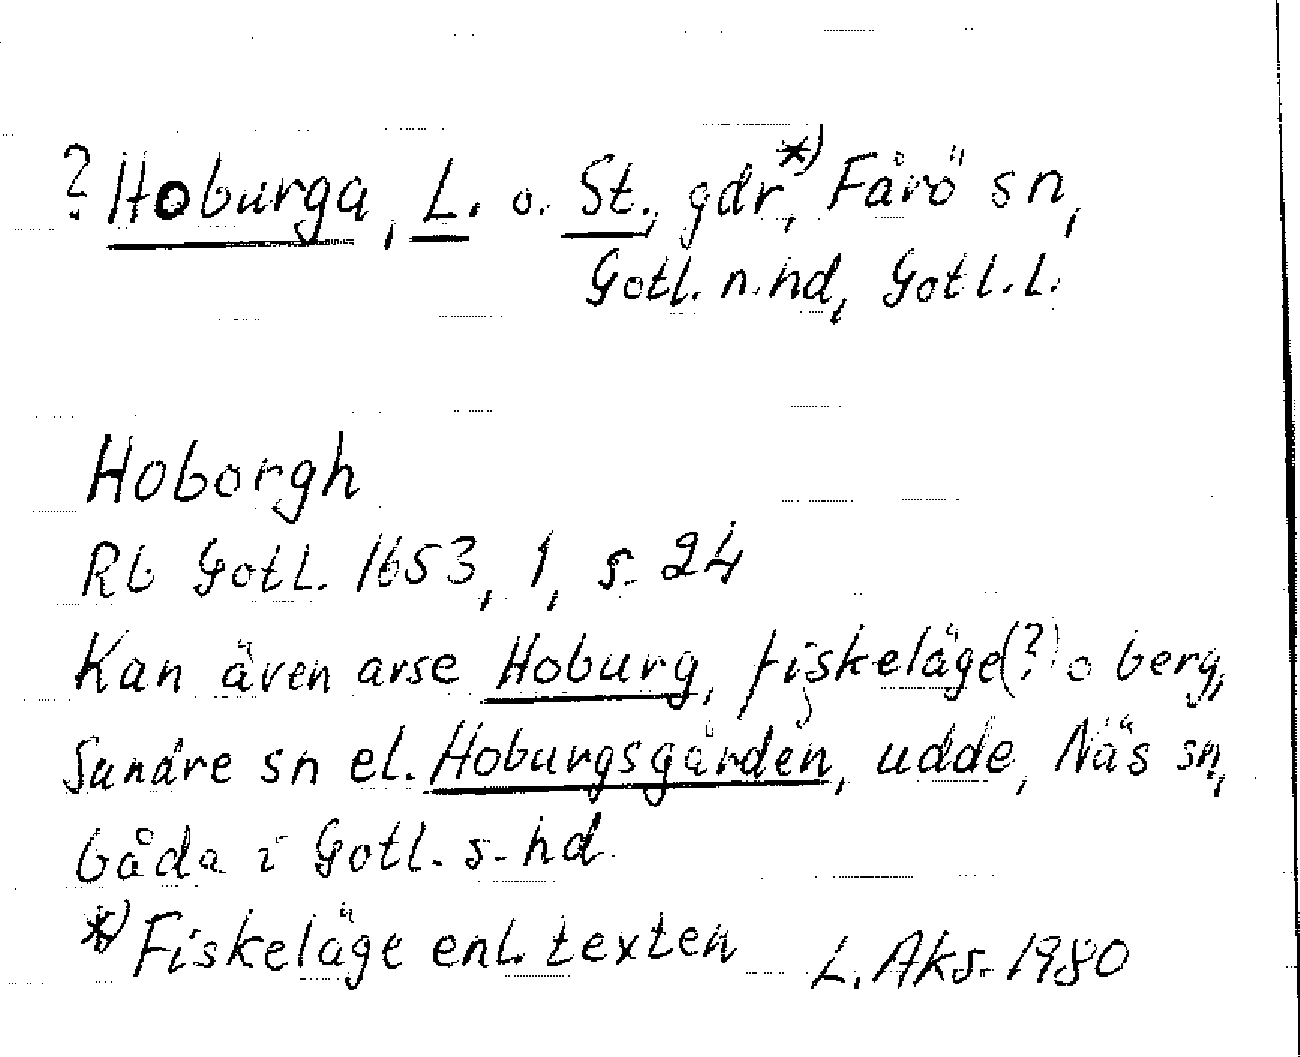 ? Hoburga, L. o. St., gdr,*) Fårö sn,
Gotl. n. hd, Gotl. l.
Hoborgh
Rb Gotl. 1653, 1, s. 24
Kan även avse Hoburg, fiskeläge(?) o berg,
Sundre sn el. Hoburgsgården, udde, Näs sn,
båda i Gotl. s. hd.
*) Fiskeläge enl. texten L. Aks. 1980